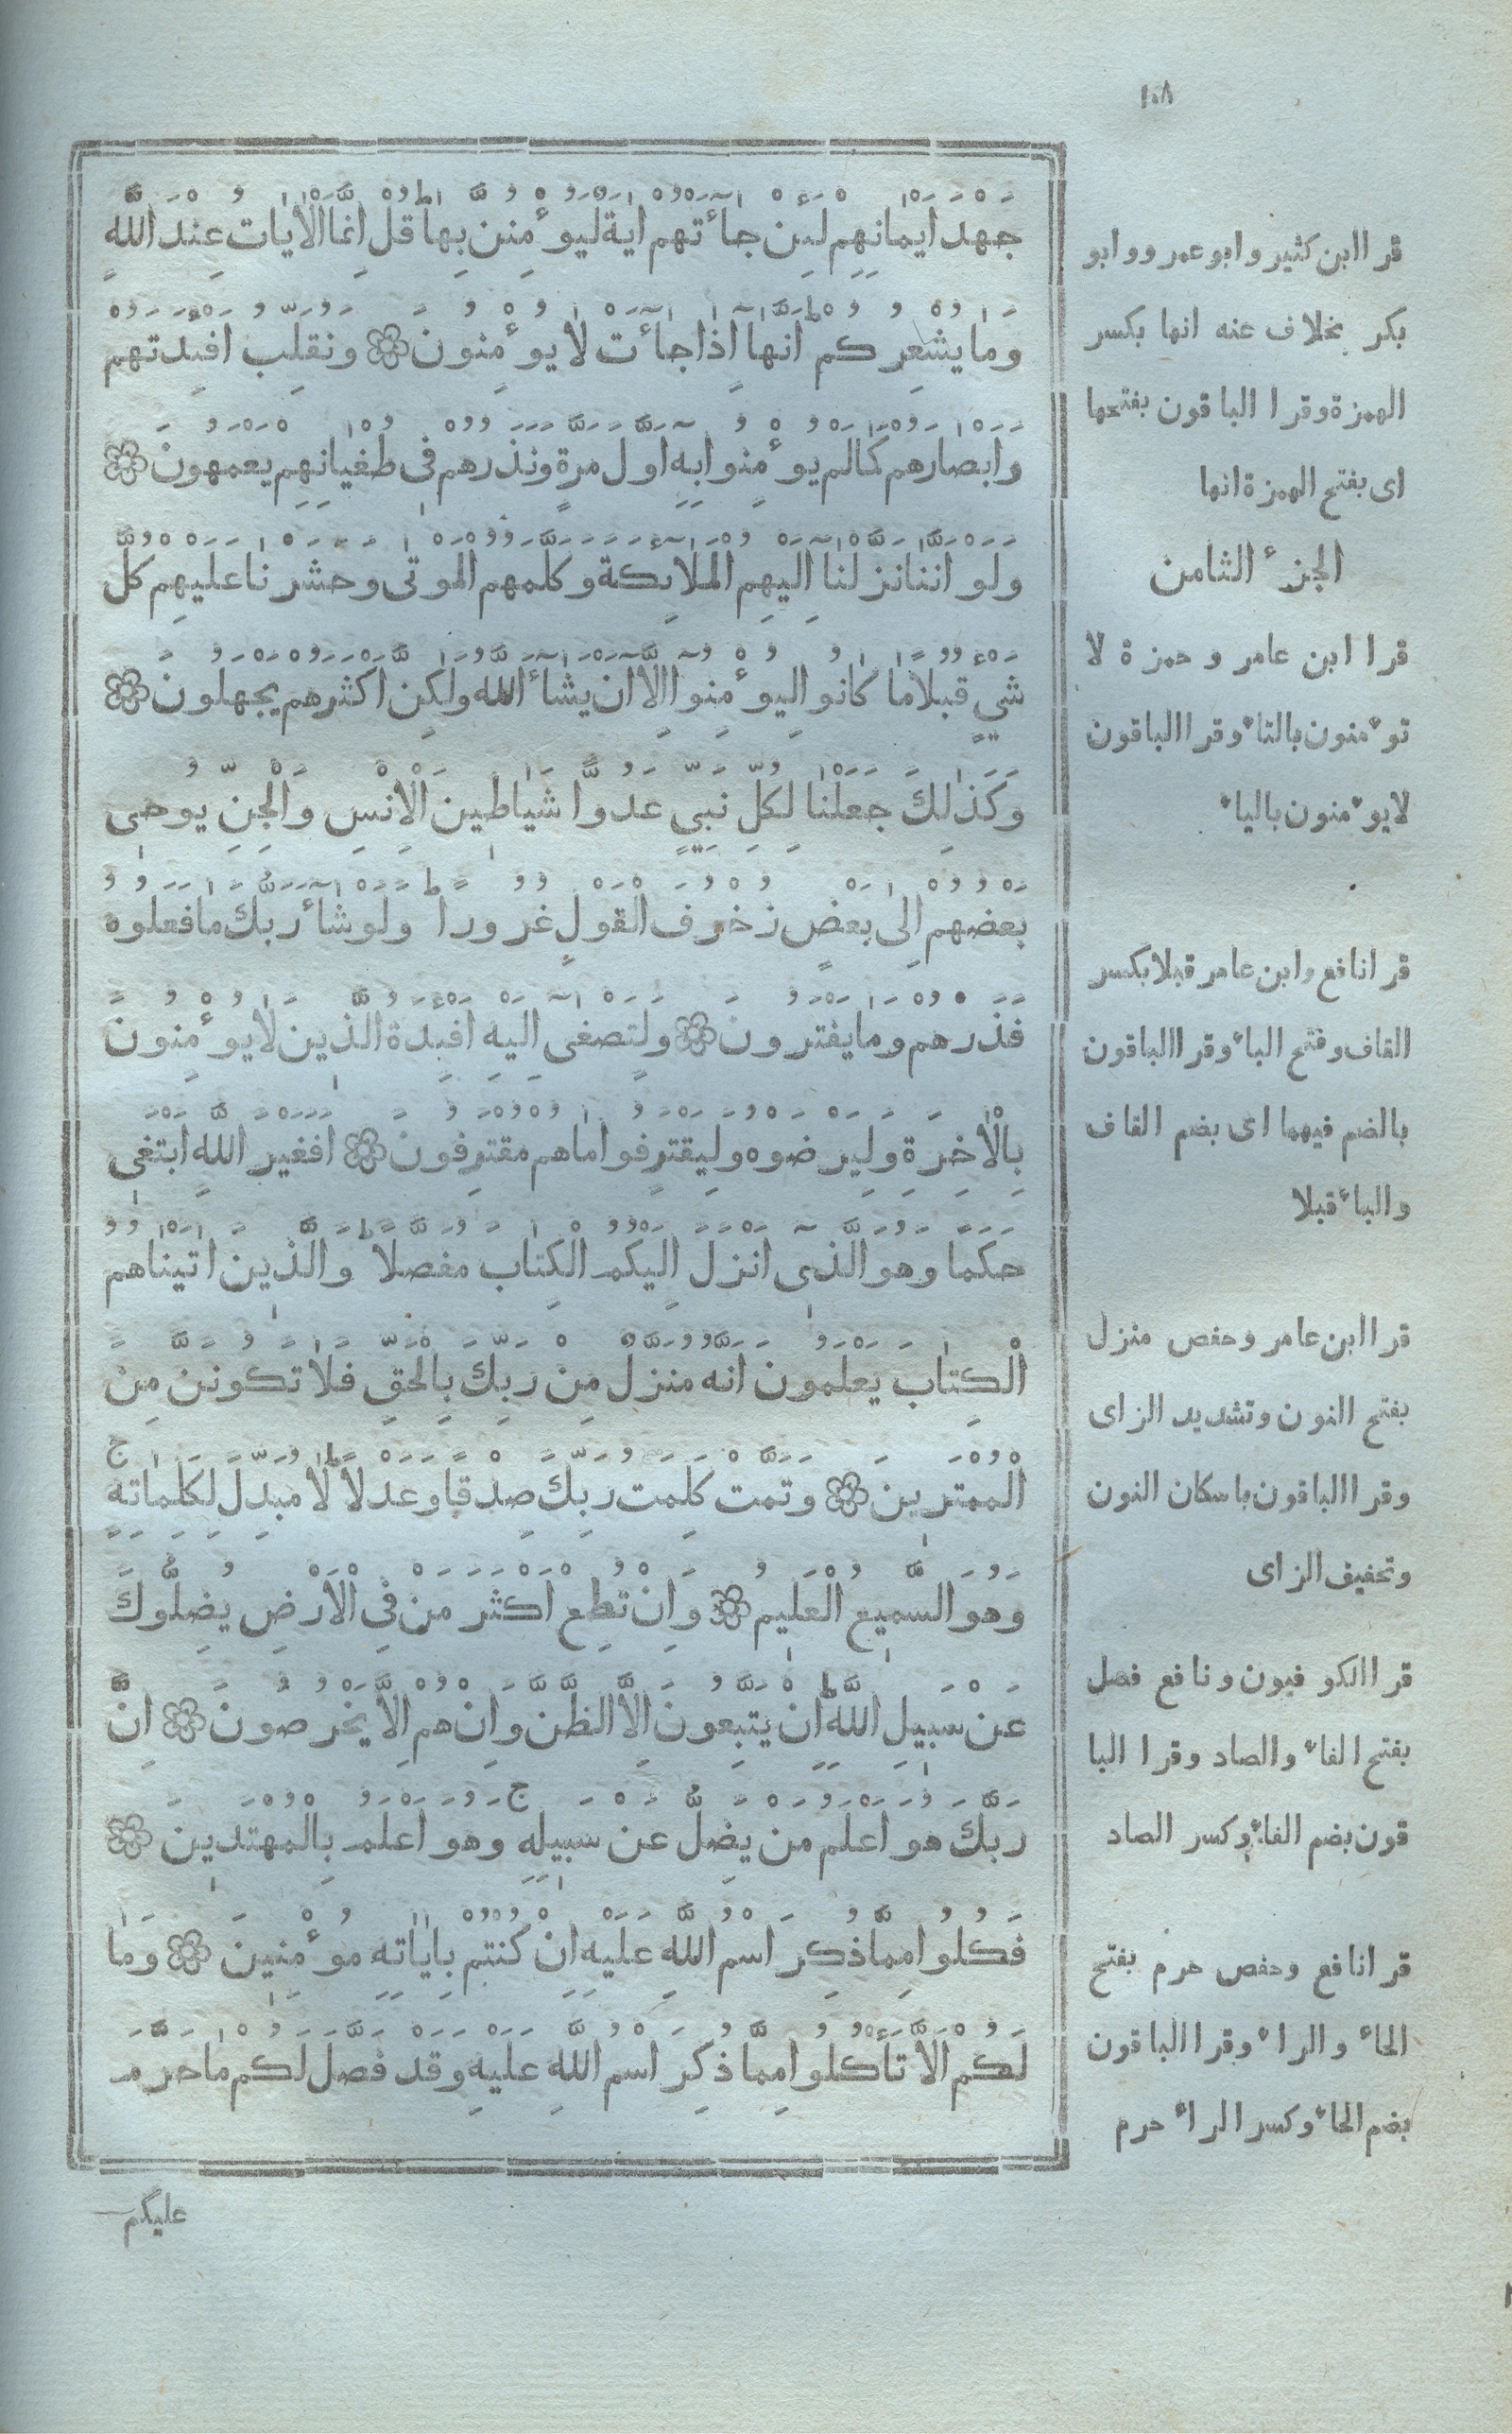 ١٠٨
جَهْدَ اَيْمَانِهِمْ لَئِنْ جَآءَتْهُمْ اٰيَةٌ لَيُوءْمِنُنَّ بِهَا ط قُلْ اِنَّمَا الْاٰيَاتُ عِنْدَ اللّٰهِ
وَمَا يُشْعِرُكُمْ ط اَنَّهَآ اِذَا جَآءَتْ لَا يُوءْمِنُونَ ۞ وَنُقَلِّبُ اَفْئِدَتَهُمْ
وَاَبْصَارَهُمْ كَمَا لَمْ يُوءْمِنُوا بِهِ اَوَّلَ مَرَّةٍ وَنَذَرُهُمْ فِى طُغْيَانِهِمْ يَعْمَهُونَ ۞
وَلَوْ اَنَّنَا نَزَّلْنَآ اِلَيْهِمُ الْمَلَآئِكَةَ وَكَلَّمَهُمُ الْمَوْتٰى وَحَشَرْنَا عَلَيْهِمْ كُلَّ
شَيْءٍ قُبُلًا مَا كَانُوا لِيُوءْمِنُوآ اِلَّآ اَنْ يَشَآءَ اللّٰهُ وَلٰكِنَّ اَكْثَرَهُمْ يَجْهَلُونَ ۞
وَكَذٰلِكَ جَعَلْنَا لِكُلِّ نَبِيٍّ عَدُوًّا شَيَاطِينَ الْاِنْسِ وَالْجِنِّ يُوحِى
بَعْضُهُمْ اِلٰى بَعْضٍ زُخْرُفَ الْقَوْلِ غُرُورًا ط وَلَوْ شَآءَ رَبُّكَ مَا فَعَلُوهُ
فَذَرْهُمْ وَمَا يَفْتَرُونَ ۞ وَلِتَصْغٰى اِلَيْهِ اَفْئِدَةُ الَّذِينَ لَا يُوءْمِنُونَ
بِالْاٰخِرَةِ وَلِيَرْضَوْهُ وَلِيَقْتَرِفُوا مَا هُمْ مُقْتَرِفُونَ ۞ اَفَغَيْرَ اللّٰهِ اَبْتَغِى
حَكَمًا وَهُوَ الَّذِىٓ اَنْزَلَ اِلَيْكُمُ الْكِتَابَ مُفَصَّلًا ط وَالَّذِينَ اٰتَيْنَاهُمُ
الْكِتَابَ يَعْلَمُونَ اَنَّهُ مُنَزَّلٌ مِنْ رَبِّكَ بِالْحَقِّ فَلَا تَكُونَنَّ مِنَ
الْمُمْتَرِينَ ۞ وَتَمَّتْ كَلِمَتُ رَبِّكَ صِدْقًا وَعَدْلًا ط لَا مُبَدِّلَ لِكَلِمَاتِهِ ج
وَهُوَ السَّمِيعُ الْعَلِيمُ ۞ وَاِنْ تُطِعْ اَكْثَرَ مَنْ فِى الْاَرْضِ يُضِلُّوكَ
عَنْ سَبِيلِ اللّٰهِ ط اِنْ يَتَّبِعُونَ اِلَّا الظَّنَّ وَاِنْ هُمْ اِلَّا يَخْرُصُونَ ۞ اِنَّ
رَبَّكَ هُوَ اَعْلَمُ مَنْ يَضِلُّ عَنْ سَبِيلِهِ ج وَهُوَ اَعْلَمُ بِالْمُهْتَدِينَ ۞
فَكُلُوا مِمَّا ذُكِرَ اسْمُ اللّٰهِ عَلَيْهِ اِنْ كُنْتُمْ بِاٰيَاتِهِ مُوءْمِنِينَ ۞ وَمَا
لَكُمْ اَلَّا تَأْكُلُوا مِمَّا ذُكِرَ اسْمُ اللّٰهِ عَلَيْهِ وَقَدْ فَصَّلَ لَكُمْ مَا حَرَّمَ
عليكم
قرا ابن كثير وابو عمرو وابو
بكر بخلاف عنه انها بكسر
الهمزة وقرا الباقون بفتحها
اى بفتح الهمزة انها
الجزء الثامن
قرا ابن عامر وحمزة لا
توءمنون بالتاء وقرا الباقون
لايوءمنون بالياء
قرا نافع وابن عامر قبلا بكسر
القاف وفتح الباء وقرا الباقون
بالضم فيهما اى بضم القاف
والباء قبلا
قرا ابن عامر وحفص منزل
بفتح النون وتشديد الزاى
وقرا الباقون باسكان النون
وتخفيف الزاى
قرا الكوفيون ونافع فصل
بفتح الفاء والصاد وقرا البا
قون بضم الفاء وكسر الصاد
قرا نافع وحفص حرم بفتح
الحاء والراء وقرا الباقون
بضم الحاء وكسر الراء حرم